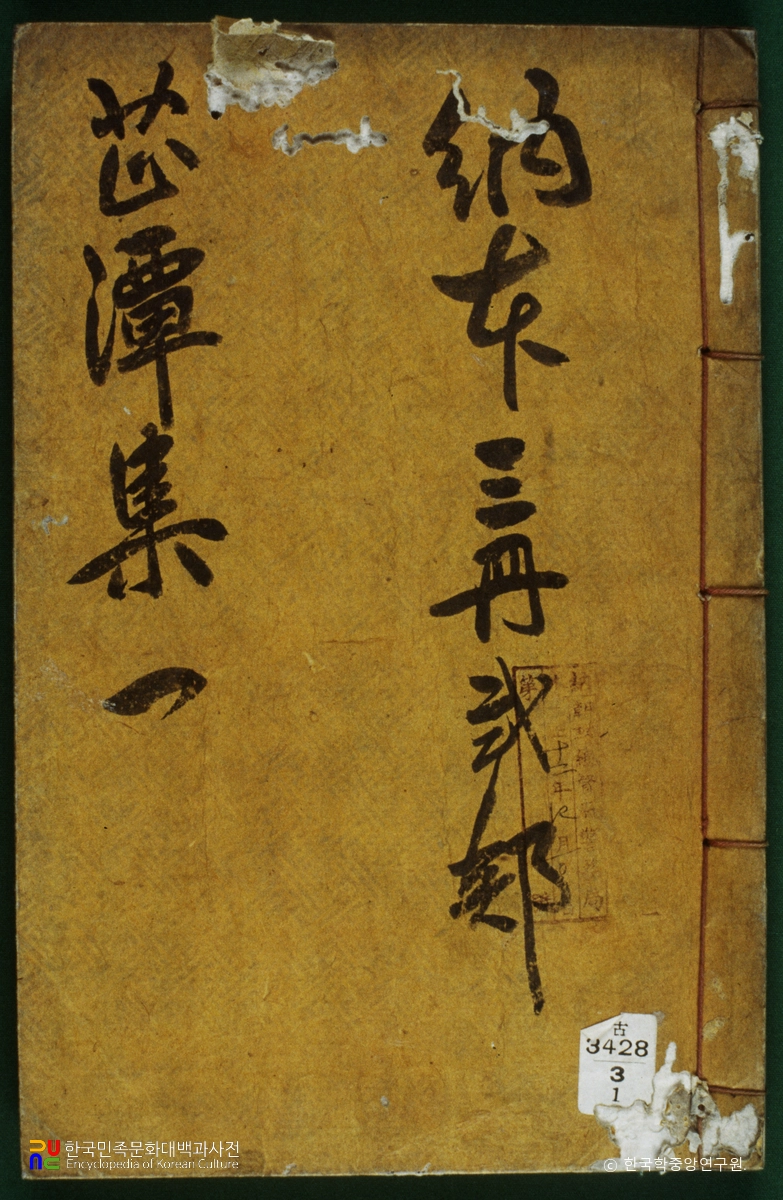 納本三冊弐部
芷潭集 一
第
十二年
月
古
3428
3
1
한국민족문화대백과사전
Encyclopedia of Korean Culture
© 한국학중앙연구원